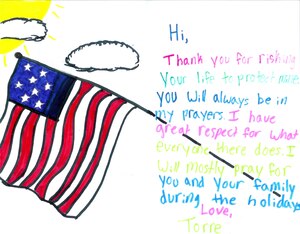 Hi,
Thank you for risking
your life to protect mine
you will always be in
my prayers. I have
great respect for what
everyone there does. I
will mostly pray for
you and your family
during the holidays
Love,
Torre